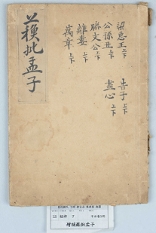 梁惠王上下
公孫丑上下
滕文公上下
離婁上下
萬章上下
告子上下
盡心上下
蘓批孟子